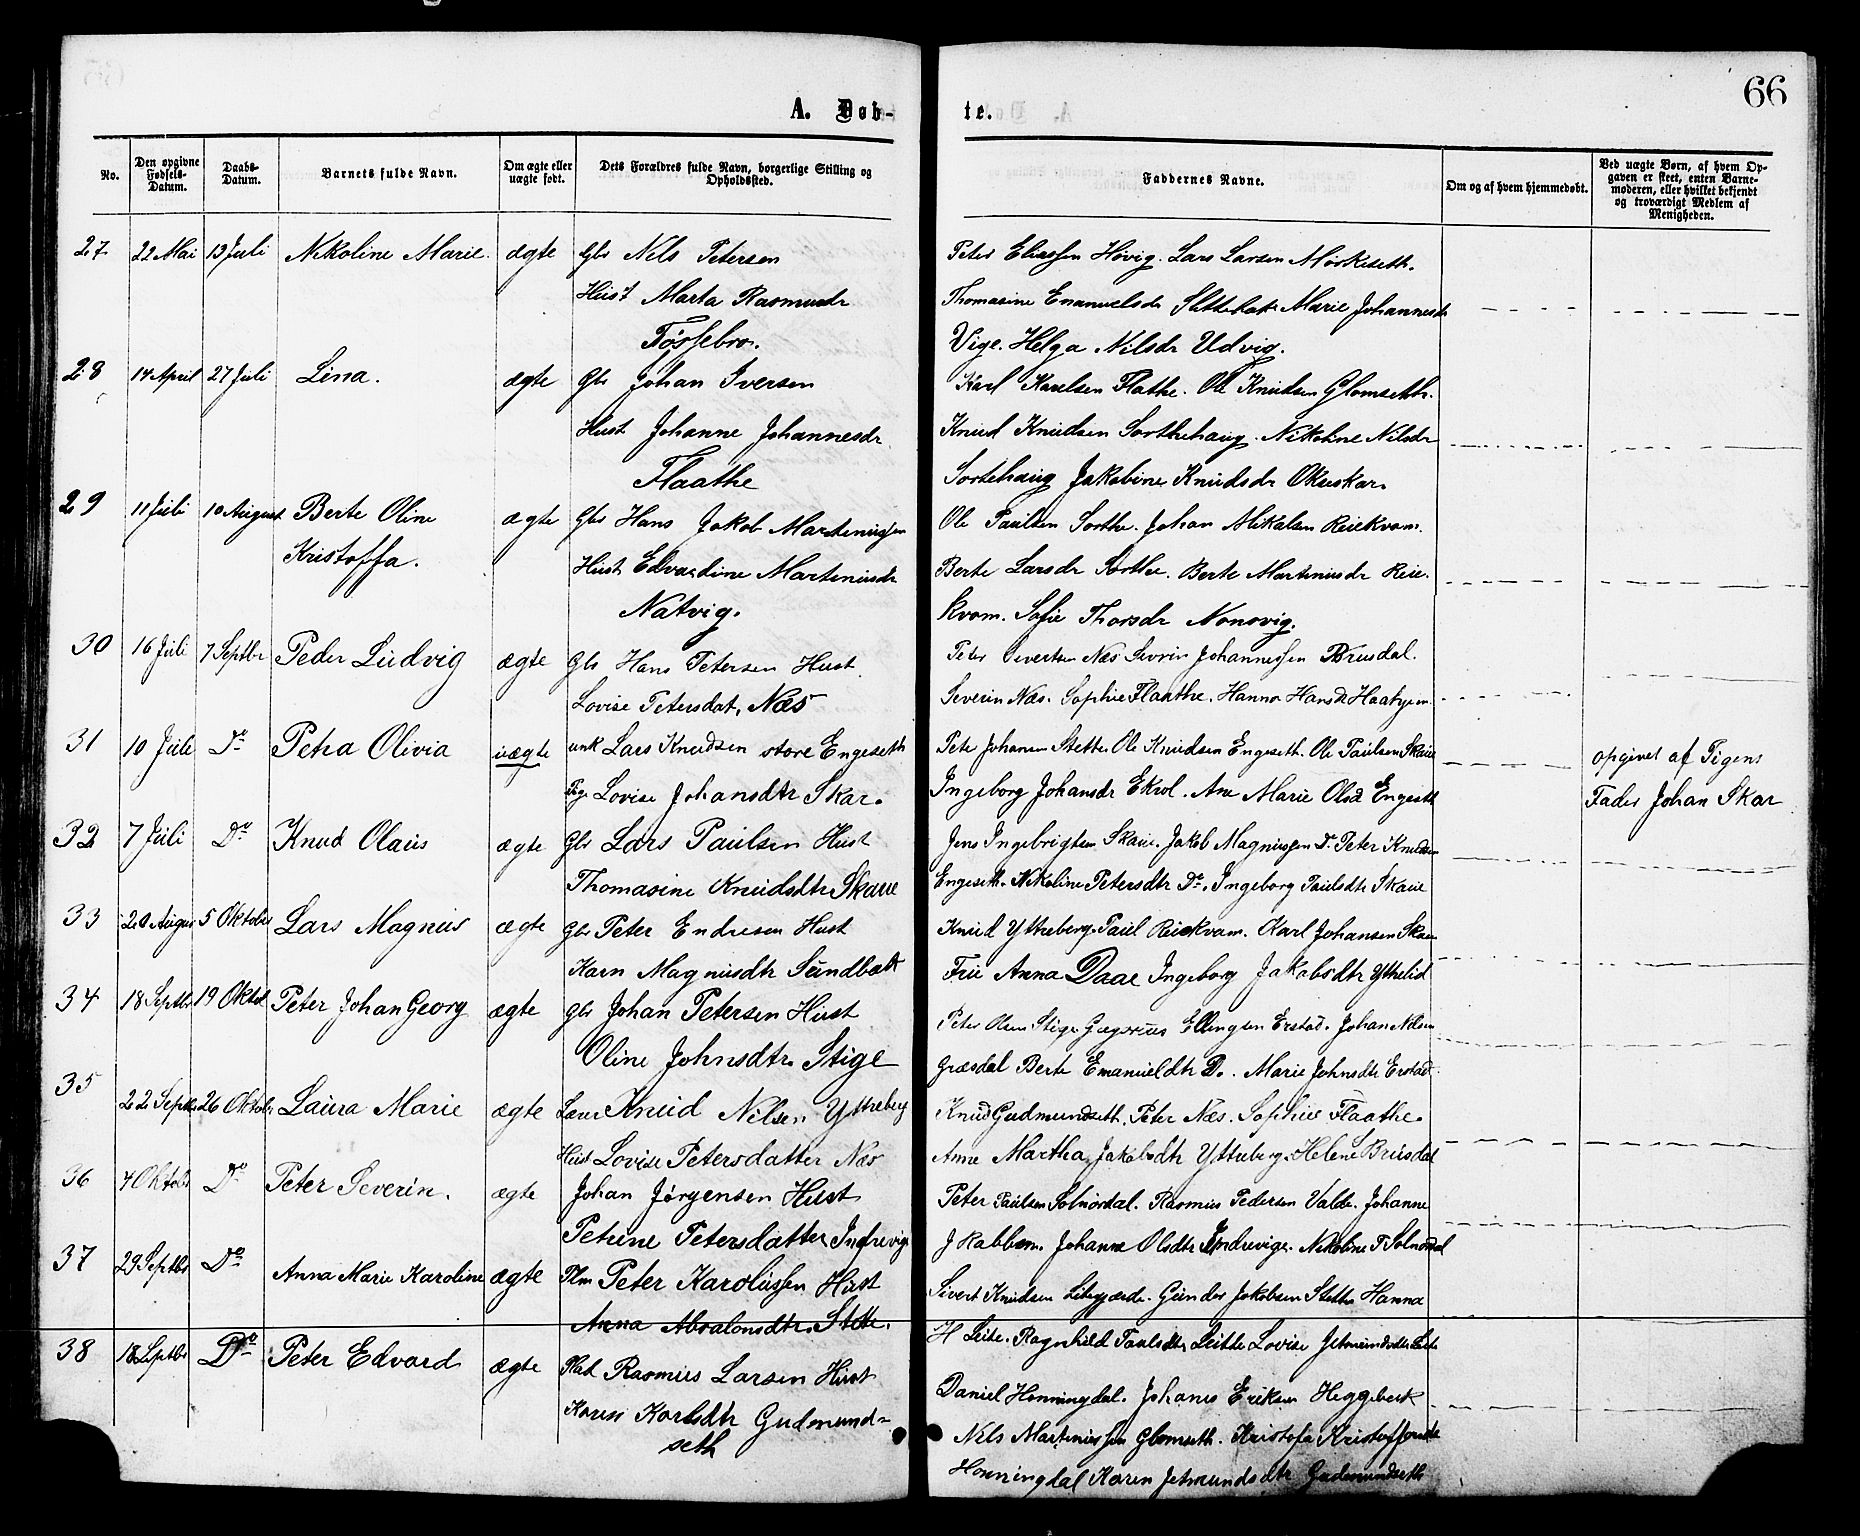 66
A. Døb-
te.
No.
Den opgivne Fødsels-Datum.
Daabs-Datum.
Barnets fulde Navn.
Om ægte eller uægte født.
Dets Forældres fulde Navn, borgerlige Stilling og Opholdssted.
Faddernes Navne.
Om og af hvem hjemmedøbt.
Ved uægte Børn, af hvem Opgaven er skeet, enten Barnemoderen, eller hvilket bekjendt og troværdigt Medlem af Menigheden.
27 22 Mai 13 Juli Nikoline Marie. ægte Gbr Nils Petersen
Hust Marta Rasmusdr
Fossebro.
Peter Eliassen Hovig. Lars Larsen Mørkeseth.
Thomasine Emanuelsdr Marie Johannesdr
Vige. Helga Nilsdr Udvig.
28 14 April 27 Juli Lina. ægte Gbr Johan Iversen
Hust Johanne Johannesdr
Flaathe
Karl Karelsen Flathe. Ole Knudsen Glomseth.
Knud Knudsen Sortehaug. Nikoline Nilsdr
Sortehaug Jakobine Knudsdr
29 11 Juli 10 August Berte Oline
Kristoffa.
ægte Gbr Hans Jakob Martinussen
Hust Edvardine Martinusdr
Natvig.
Ole Paulsen Sorthe. Johan Mikalsen Reiekvam.
Berte Larsdr Sorthe. Berte Martinusdr Reie-
kvam. Sofie Thorsdr Nonsvig.
30 16 Juli 7 Septbr Peder Ludvig ægte Gbr Hans Petersen Hust.
Lovise Petersdat. Næs
Peter Sivertsen Næs Sevrin Johannessen Brusdal.
Severin Næs. Sophie Flaathe. Hanna Hansd
31 10 Juli Do Petra Olivia uægte unk Lars Knudsen store Engeseth
Pige Lovise Johansdtr Skar.
Peter Johansen Stette Ole Knudsen Engeseth. Ole Paulsen Skaue
Ingeborg Johansdr Ekrol. Ane Marie Olsd Engeseth
opgivet af Pigens
Fader Johan Skar
32 7 Juli Do Knud Olaus ægte Gbr Lars Paulsen Hust
Thomasine Knudsdtr Skaue
Jens Ingebrigtsen Skaue. Jakob Magnussen Do Peter Knudsen
Engeseth. Nikoline Petersdtr Do. Ingeborg Paulsdtr Skaue
33 20 August 5 Oktober Lars Magnus ægte Gbr Peter Endresen Hust
Karn Magnusdtr Sundbakk
Knud Ytteberg. Paul Reiekvam. Karl Johansen Skaue
Fru Anna Daae Ingeborg Jakobsdtr Ythelid
34 18 Septbr 19 Oktob Peter Johan Georg ægte Gbr Johan Petersen Hust
Oline Johnsdtr Stige
Peter Olsen Stige Gregorius Ellingsen Erstad. Johan Nilsen
Græsdal Berte Emanueldtr Do. Marie Johnsdtr Erstad
35 22 Septbr 26 Oktobr Laura Marie ægte Lærer Knud Nilsen Yttreberg
Hust Lovise Petersdatter Næs
Knud Gudmundseth. Peter Næs. Sophie Flaathe.
Anne Martha Jakobsdtr Yttreberg. Helene Brusdal
36 4 Oktobr Do Peter Severin. ægte Johan Jørgensen Hust
Petrine Petersdatter Indrevige
Peter Paulsen Solnørdal. Rasmus Pedersen Valde. Johanne
J Rabben. Johanne Olsdtr Indrevige. Nikoline P Solnørdal
37 29 Septbr Do Anna Marie Karoline ægte Plm Peter Karolussen Hust
Anna Absalonsdtr. Stette.
Sivert Knudsen Gunder Jakobsen Stette Hanna
H Leite. Ragnhild Paulsdtr Leitte Lovise Jetmundsdtr
38 18 Septbr Do Peter Edvard ægte Plad Rasmus Larsen Hust
Karen Karlsdtr Gudmund-
seth
Daniel Honningdal. Johanes Eriksen Heggebak
Nils Martinussen Glomseth. Kristofa Kristoffersdtr
Honningdal Karen Jetmundsdtr Gudmundseth